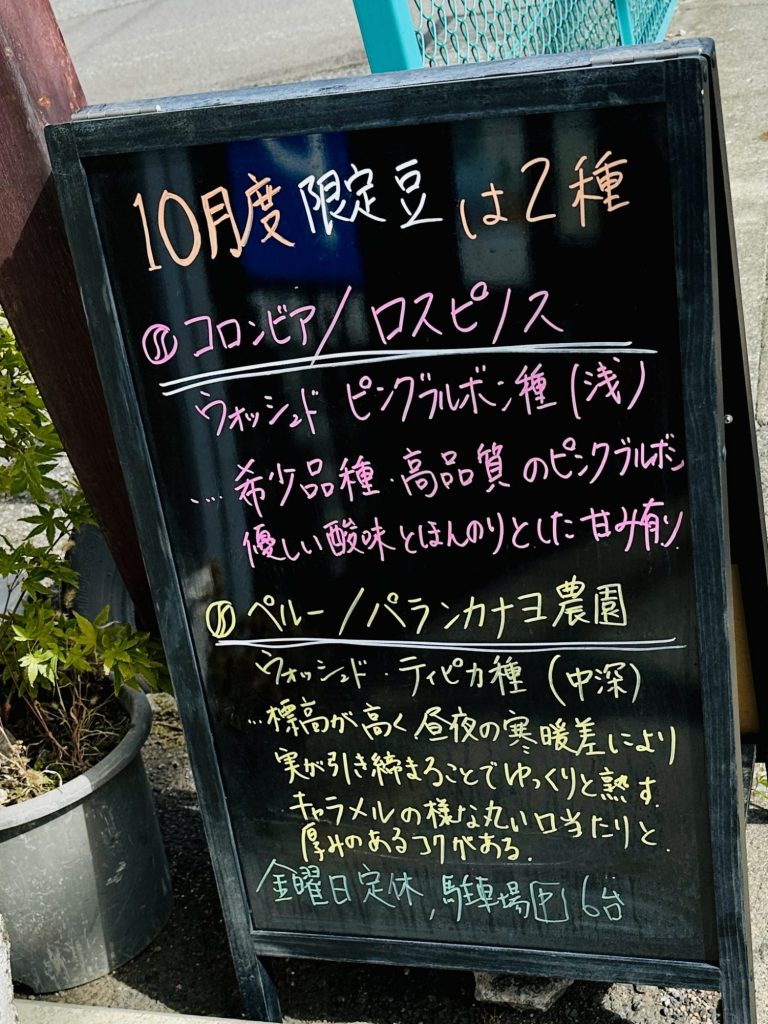 10月度限定豆は2種
コロンビア/ロスピノス
ウォッシュド ピンクブルボン種(浅)
…希少品種・高品質のピンクブルボン
優しい酸味とほんのりとした甘み有り
ペルー/パランカナヨ農園
ウォッシュド・ティピカ種(中深)
…標高が高く昼夜の寒暖差により
実が引き締まることでゆっくりと熟す.
キャラメルの様な丸い口当たりと
厚みのあるコクがある.
金曜日定休,駐車場 6台